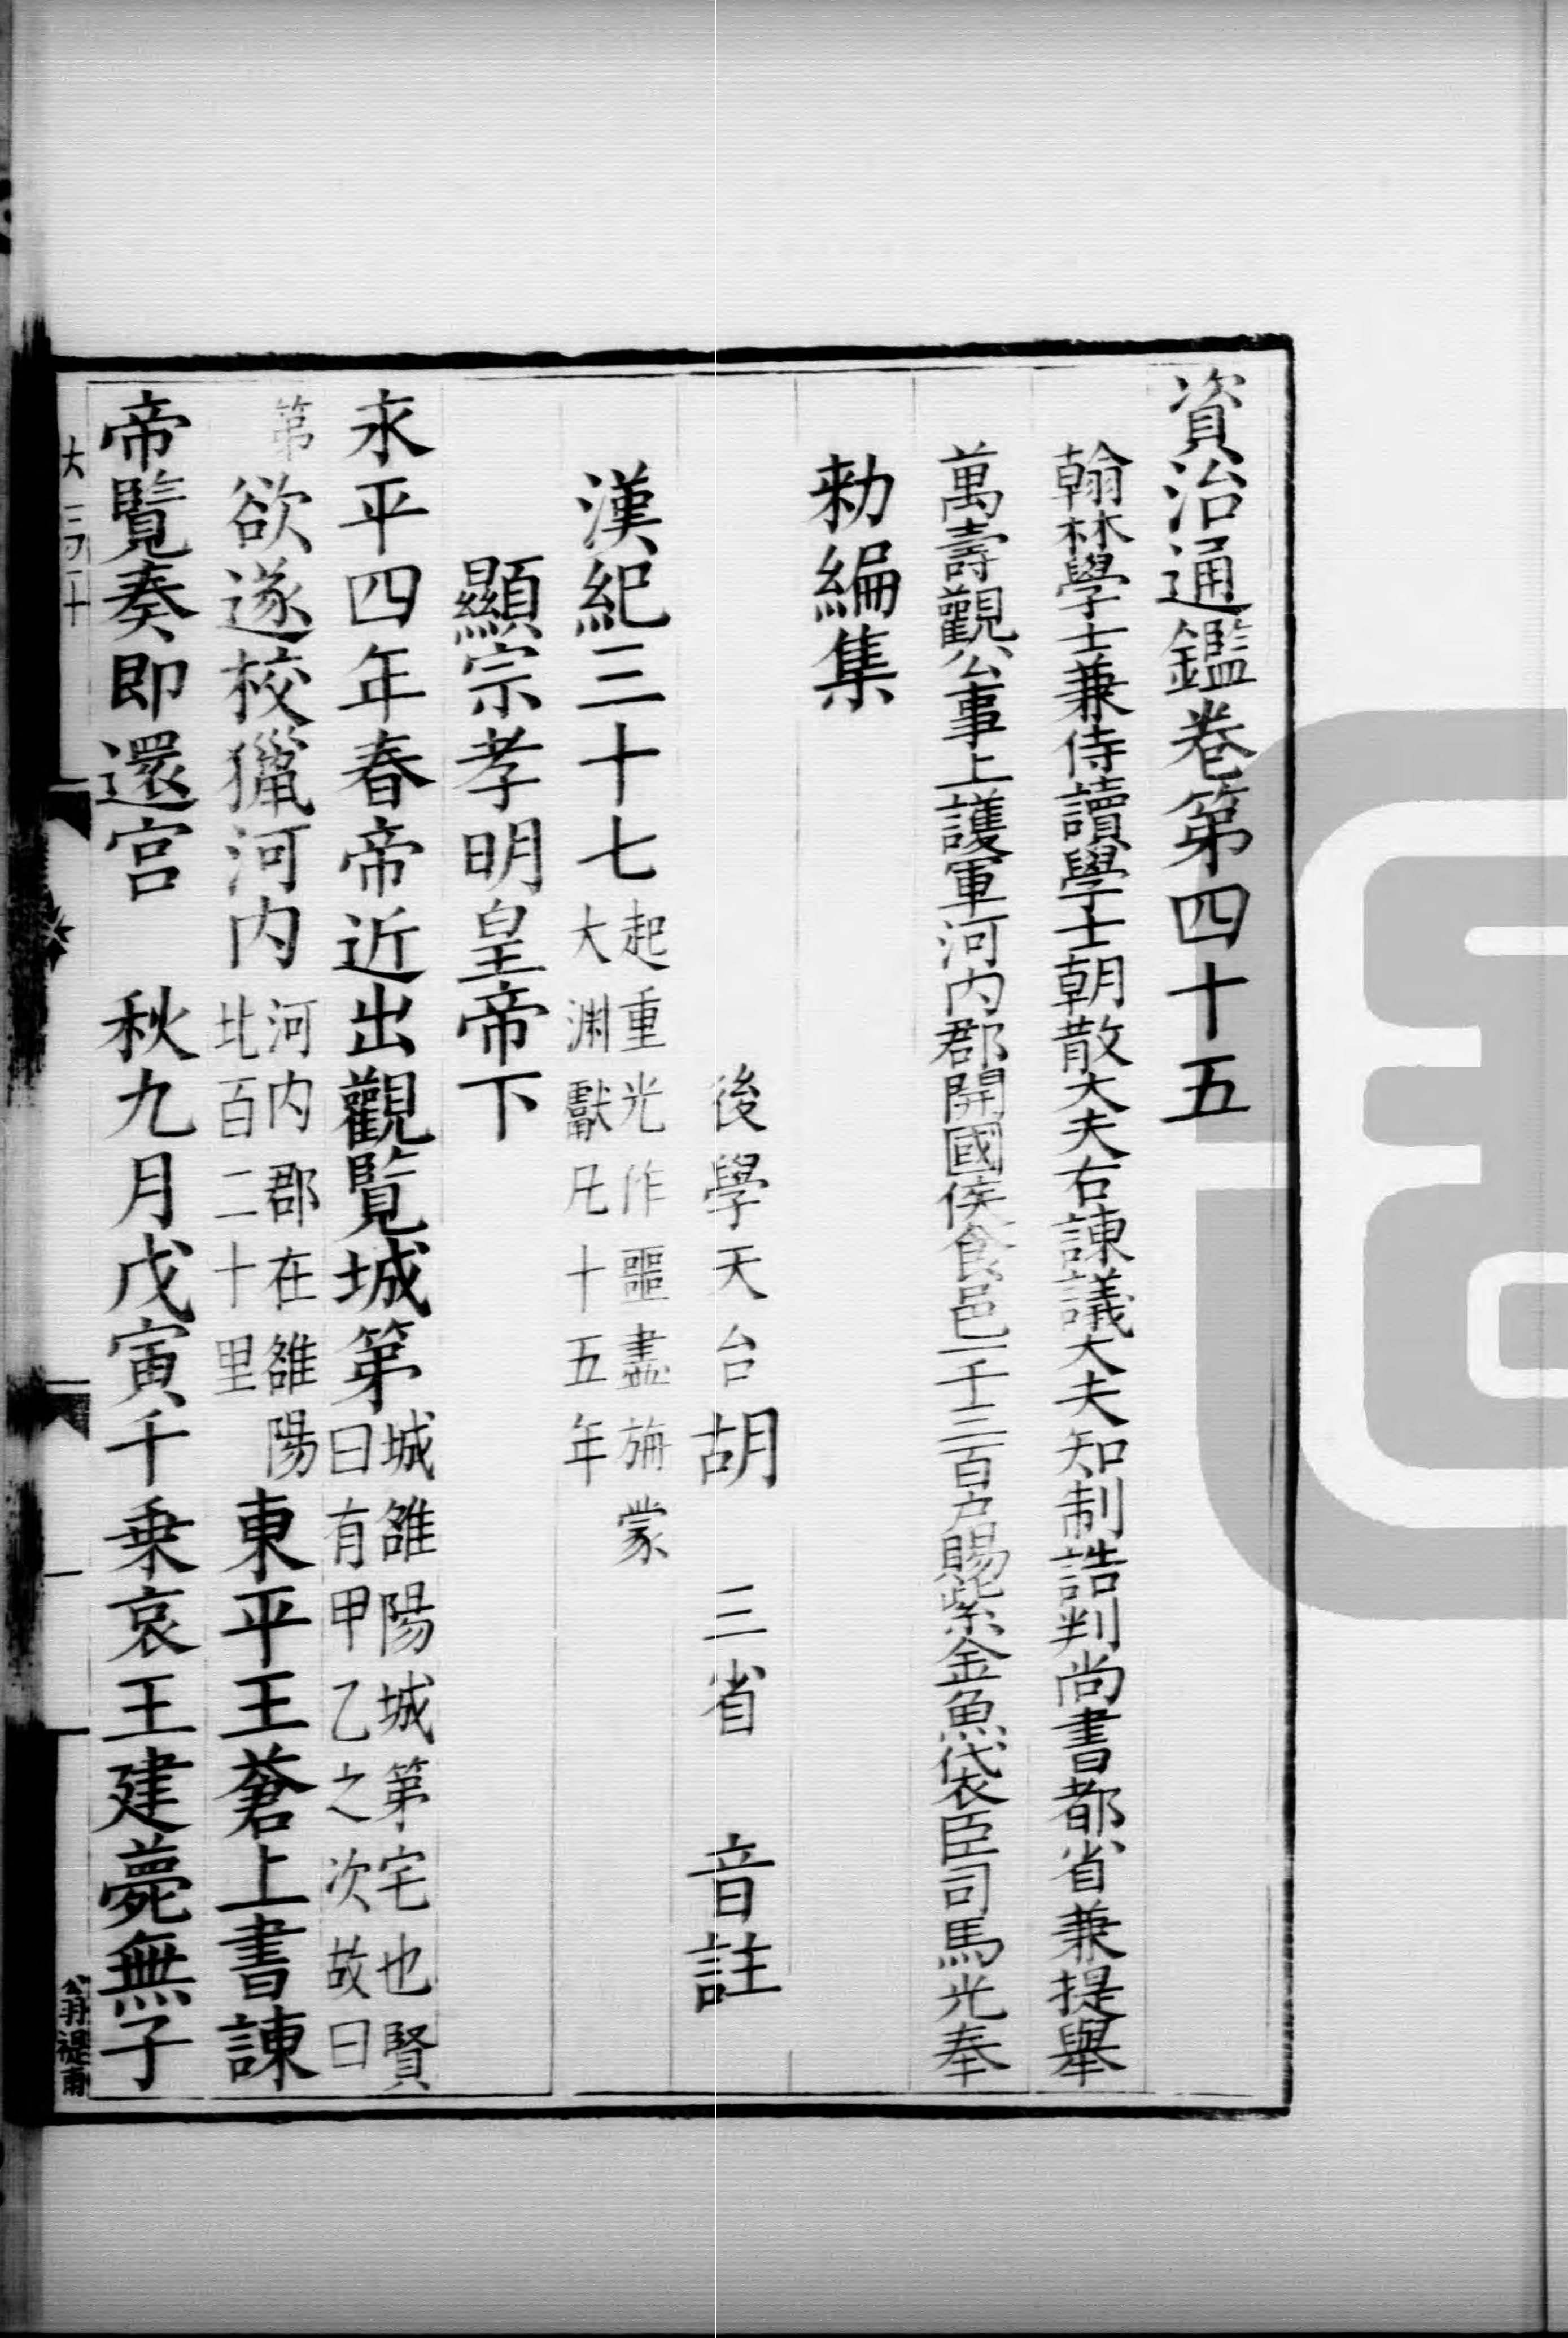 資治通鑑卷第四十五
翰林學士兼侍讀學士朝散大夫右諫議大夫知制誥判尚書都省兼提舉
萬壽觀公事上護軍河內郡開國侯食邑一千三百戶賜紫金魚袋臣司馬光奉
勑編集
後學天台胡三省音註
漢紀三十七起重光作噩盡旃蒙大淵獻凡十五年
顯宗孝明皇帝下
永平四年春帝近出觀覽城第城雒陽城第宅也賢曰有甲乙之次故曰
第欲遂校獵河內河內郡在雒陽北百二十里東平王蒼上書諫
帝覽奏即還宮 秋九月戊寅千乘哀王建薨無子
大三百二十
翁禔甫